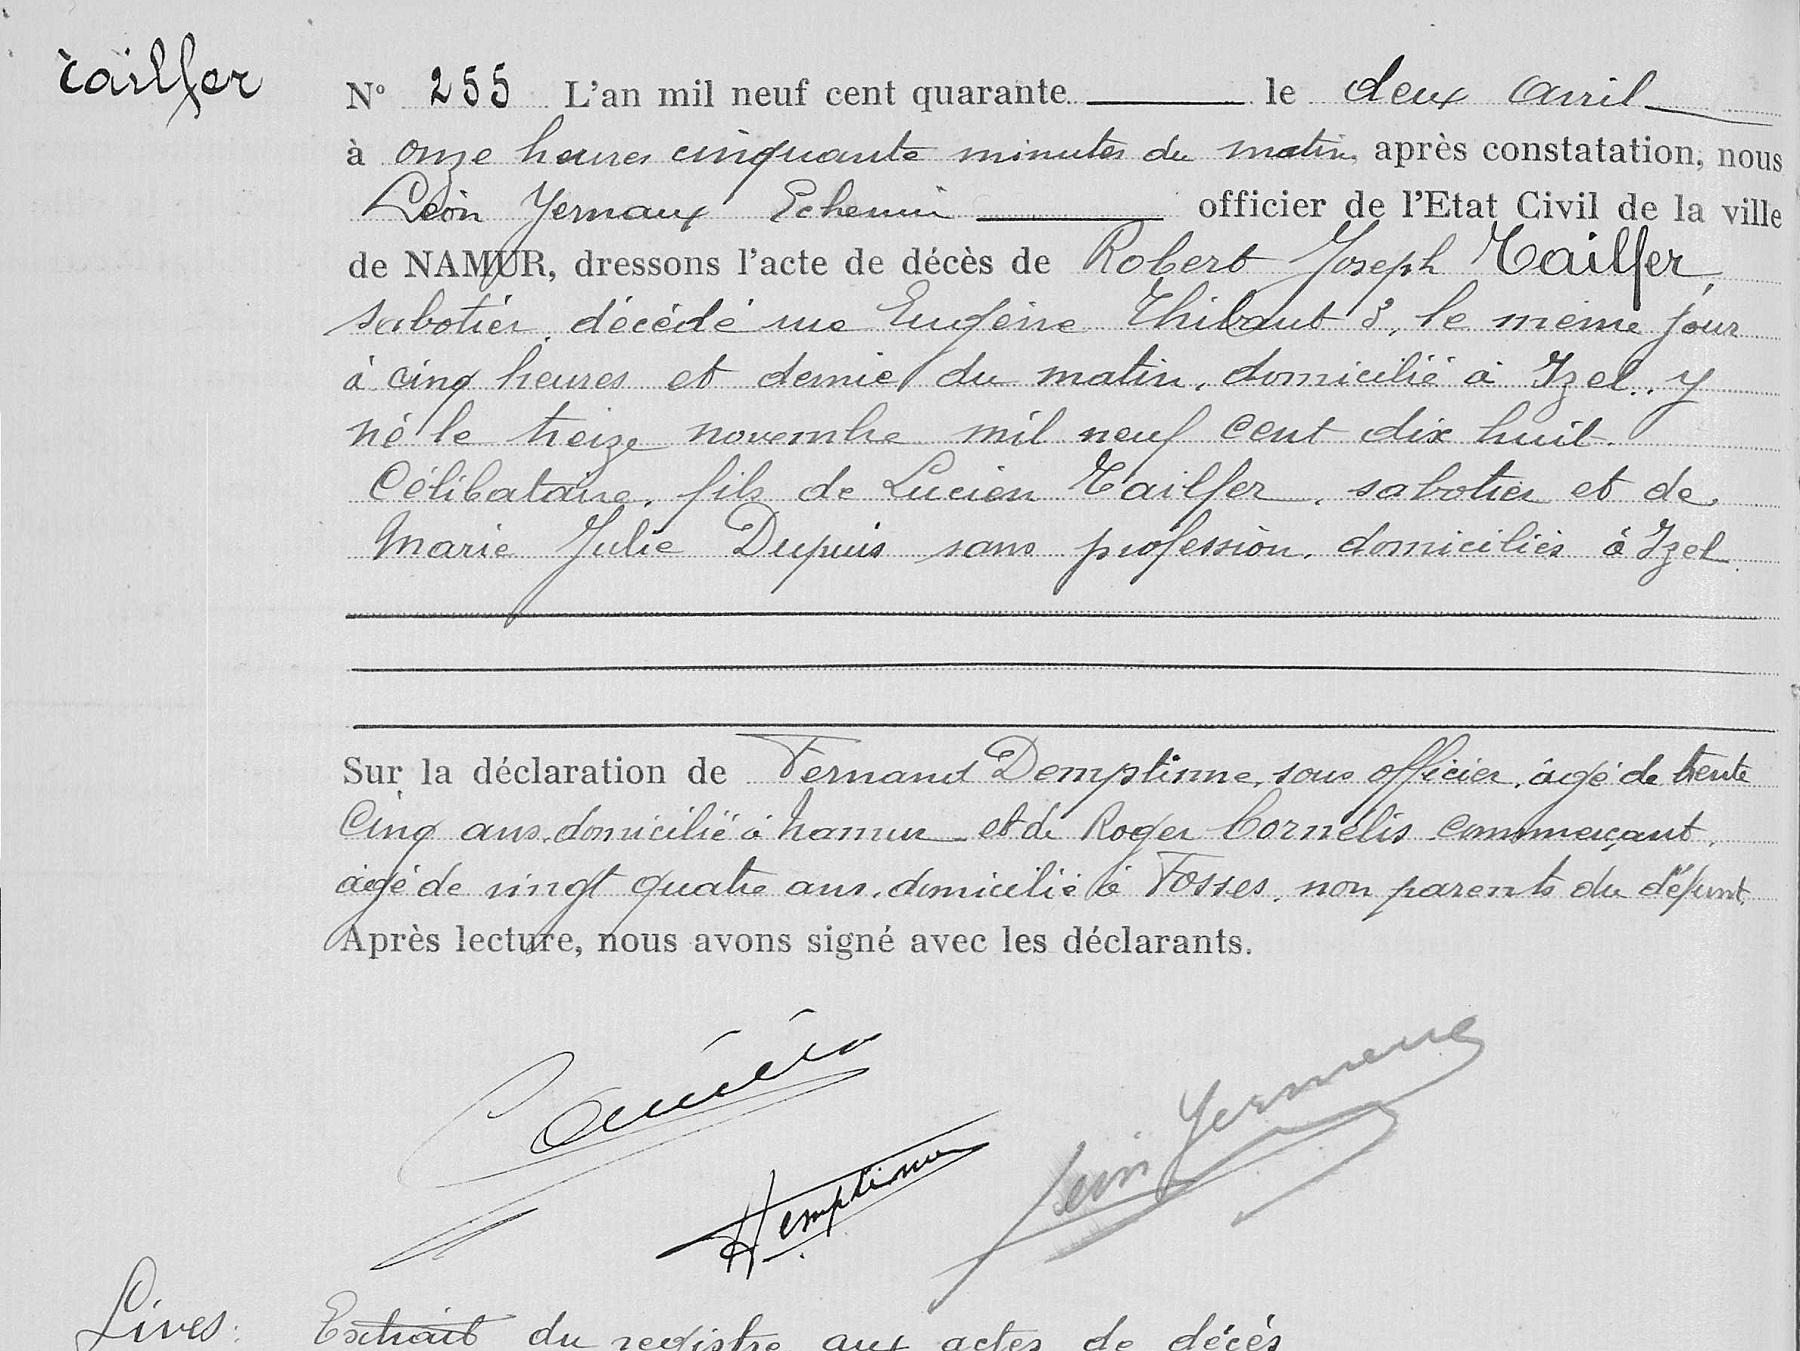 Tailfer
N° 255 L'an mil neuf cent quarante le deux avril
à onze heures cinquante minutes du matin, après constatation, nous
Léon Yernaux Echevin officier de l'Etat Civil de la ville
de NAMUR, dressons l'acte de décès de Robert Joseph Tailfer,
sabotier, décédé rue Eugène Thibaut 3, le même jour
à cinq heures et demie du matin, domicilié à Izel, y
né le treize novembre mil neuf cent dix huit.
Célibataire, fils de Lucien Tailfer, sabotier et de
Marie Julie Dupuis sans profession, domiciliés à Izel.
Sur la déclaration de Fernand Demptinne, sous officier, âgé de trente
Cinq ans, domicilié à Namur et de Roger Cornélis commerçant,
âgé de vingt quatre ans, domicilié à Fosses, non parents du défunt.
Après lecture, nous avons signé avec les déclarants.
Léon Yernaux
Demptinne
Lives: Extrait du registre aux actes de décès